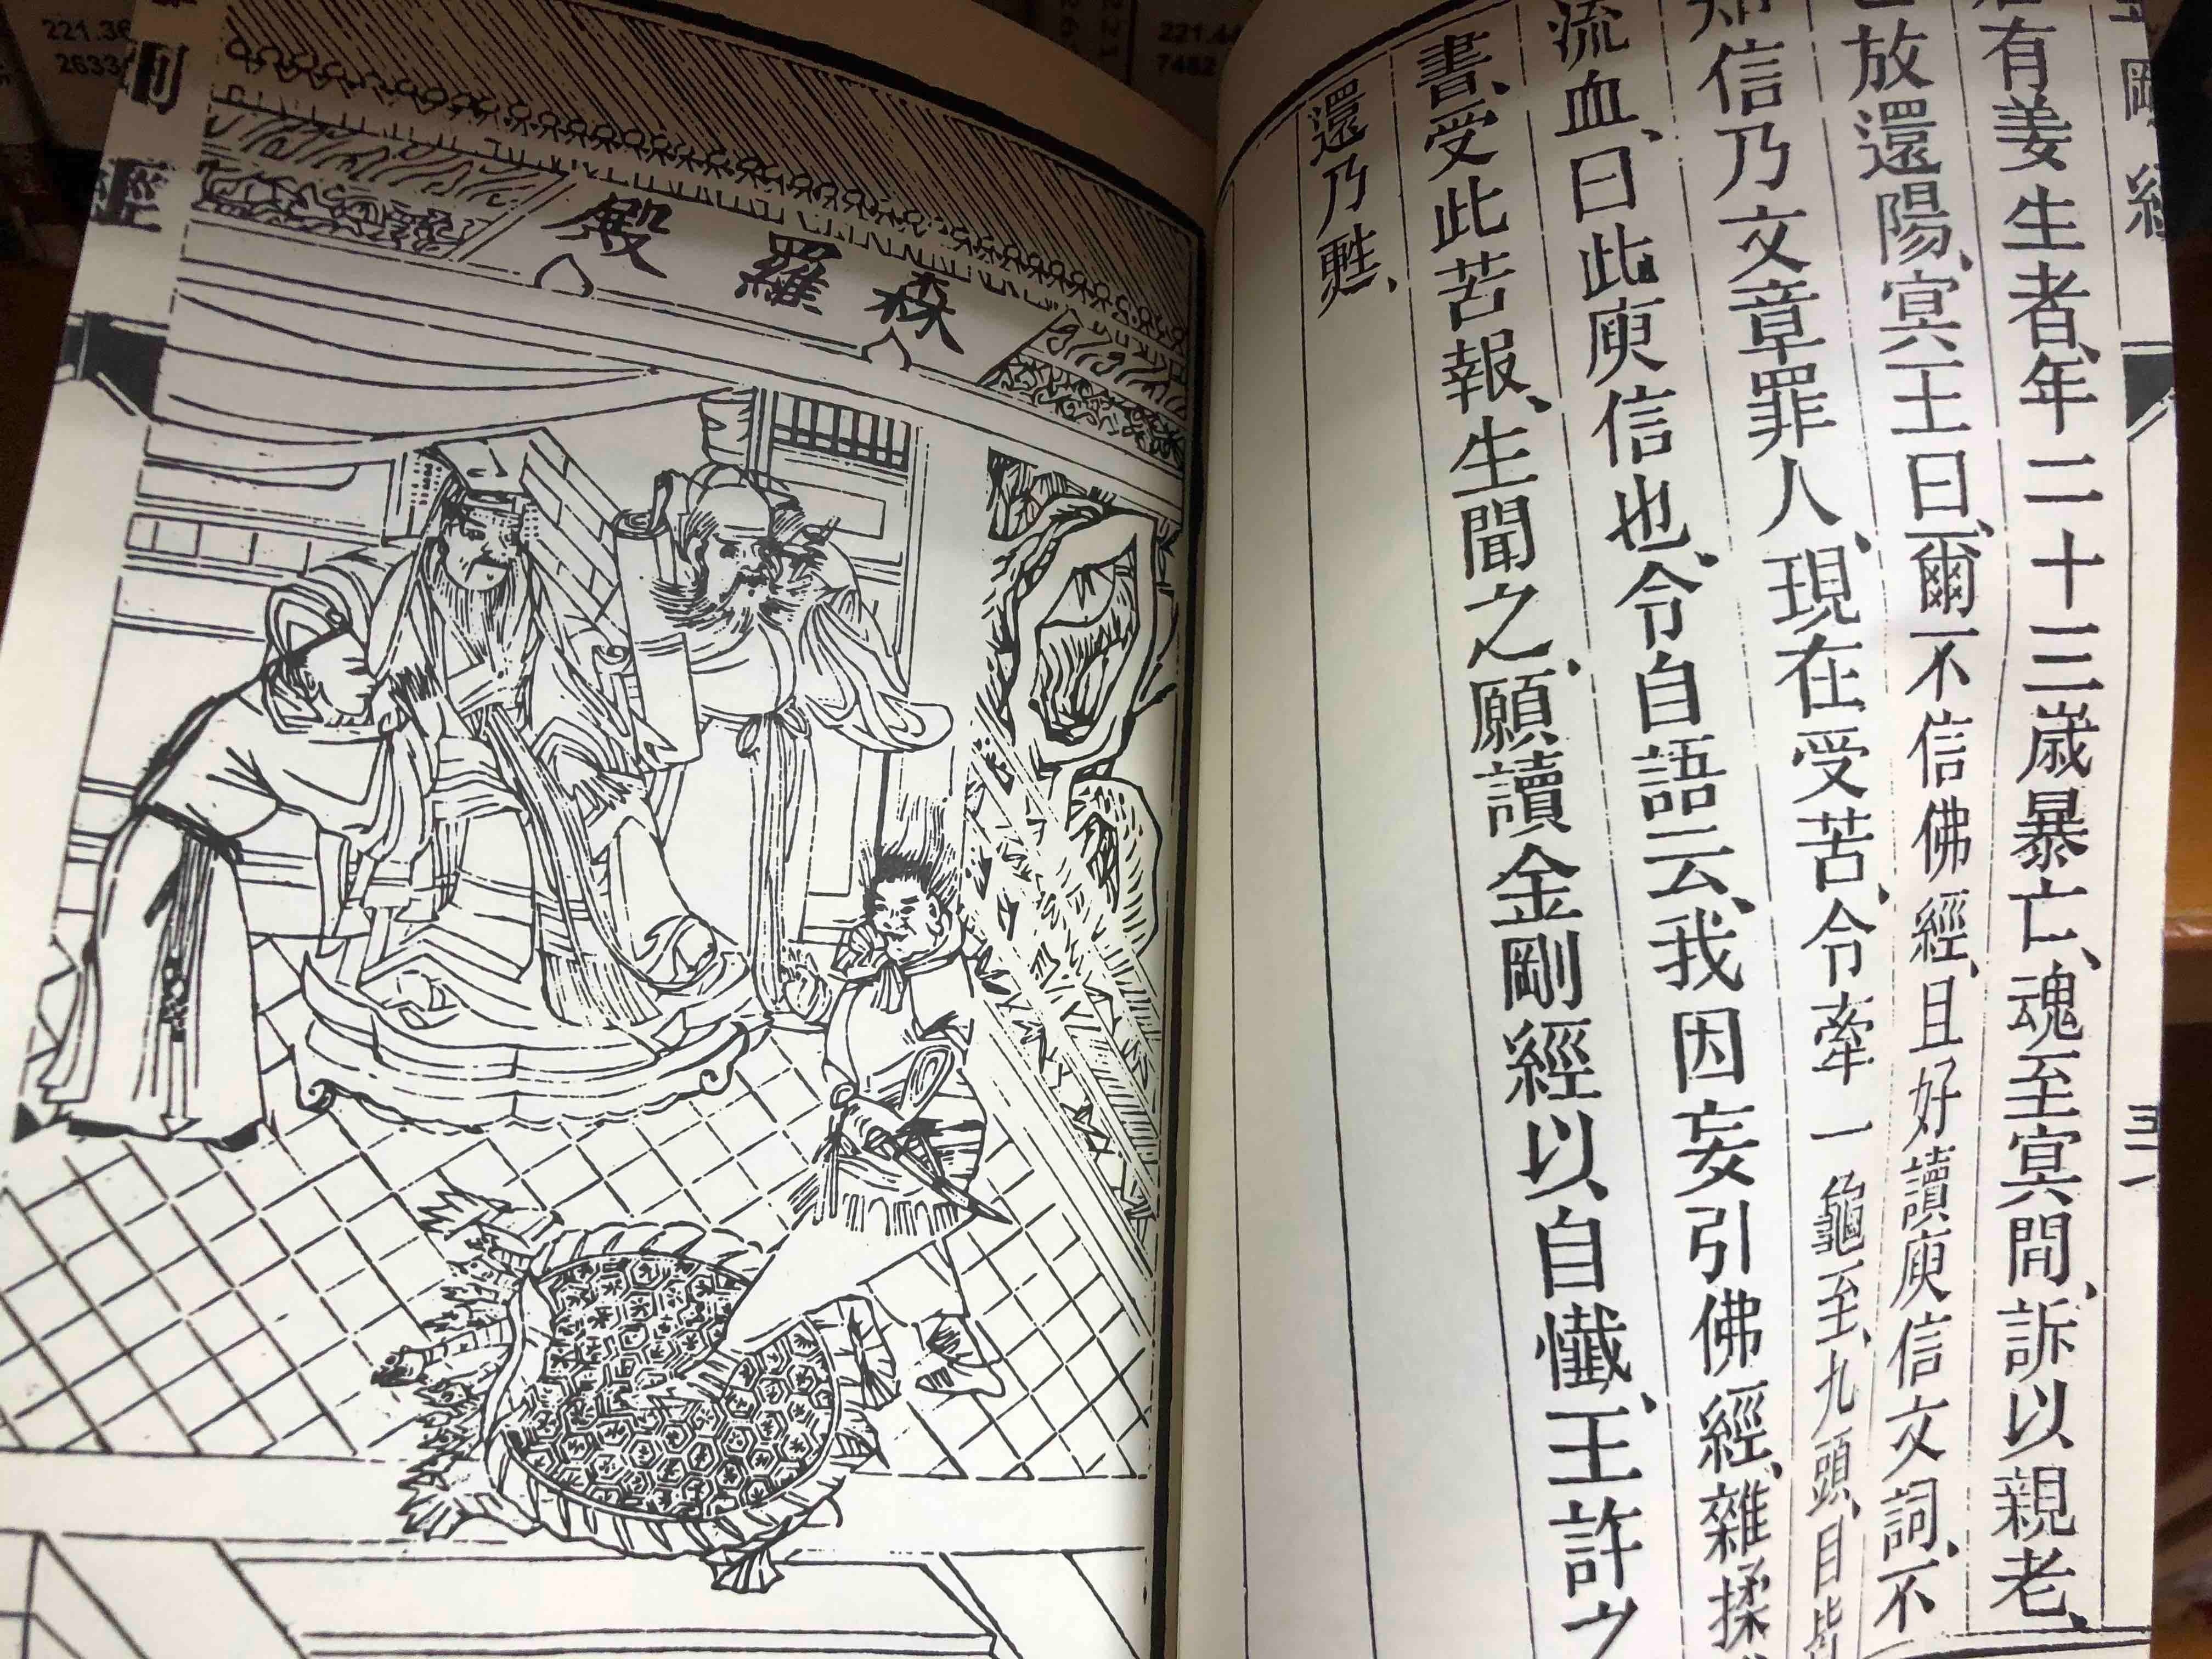 金剛經
三一
有姜生者、年二十三歲暴亡、魂至冥間、訴以親老、
放還陽、冥王曰、爾不信佛經、且好讀庾信文詞、不
知信乃文章罪人、現在受苦、令牽一龜至、九頭、目皆
流血、曰此庾信也、令自語云、我因妄引佛經、雜揉
書、受此苦報、生聞之、願讀金剛經以自懺、王許之
還乃甦、
森羅殿
剛經
221.36
2633
221.44
7482